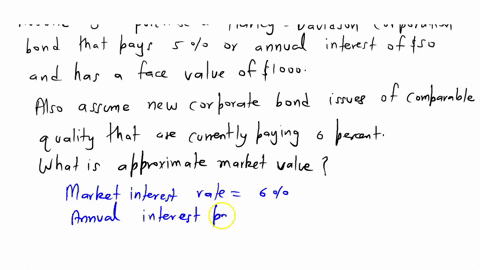 purchase a Harley-Davidson Corporation
bond that pays 5% or annual interest of $50
and has a face value of $1000.
Also assume new corporate bond issues of comparable
quality that are currently paying 6 percent.
What is approximate market value?
Market interest rate = 6%
Annual interest